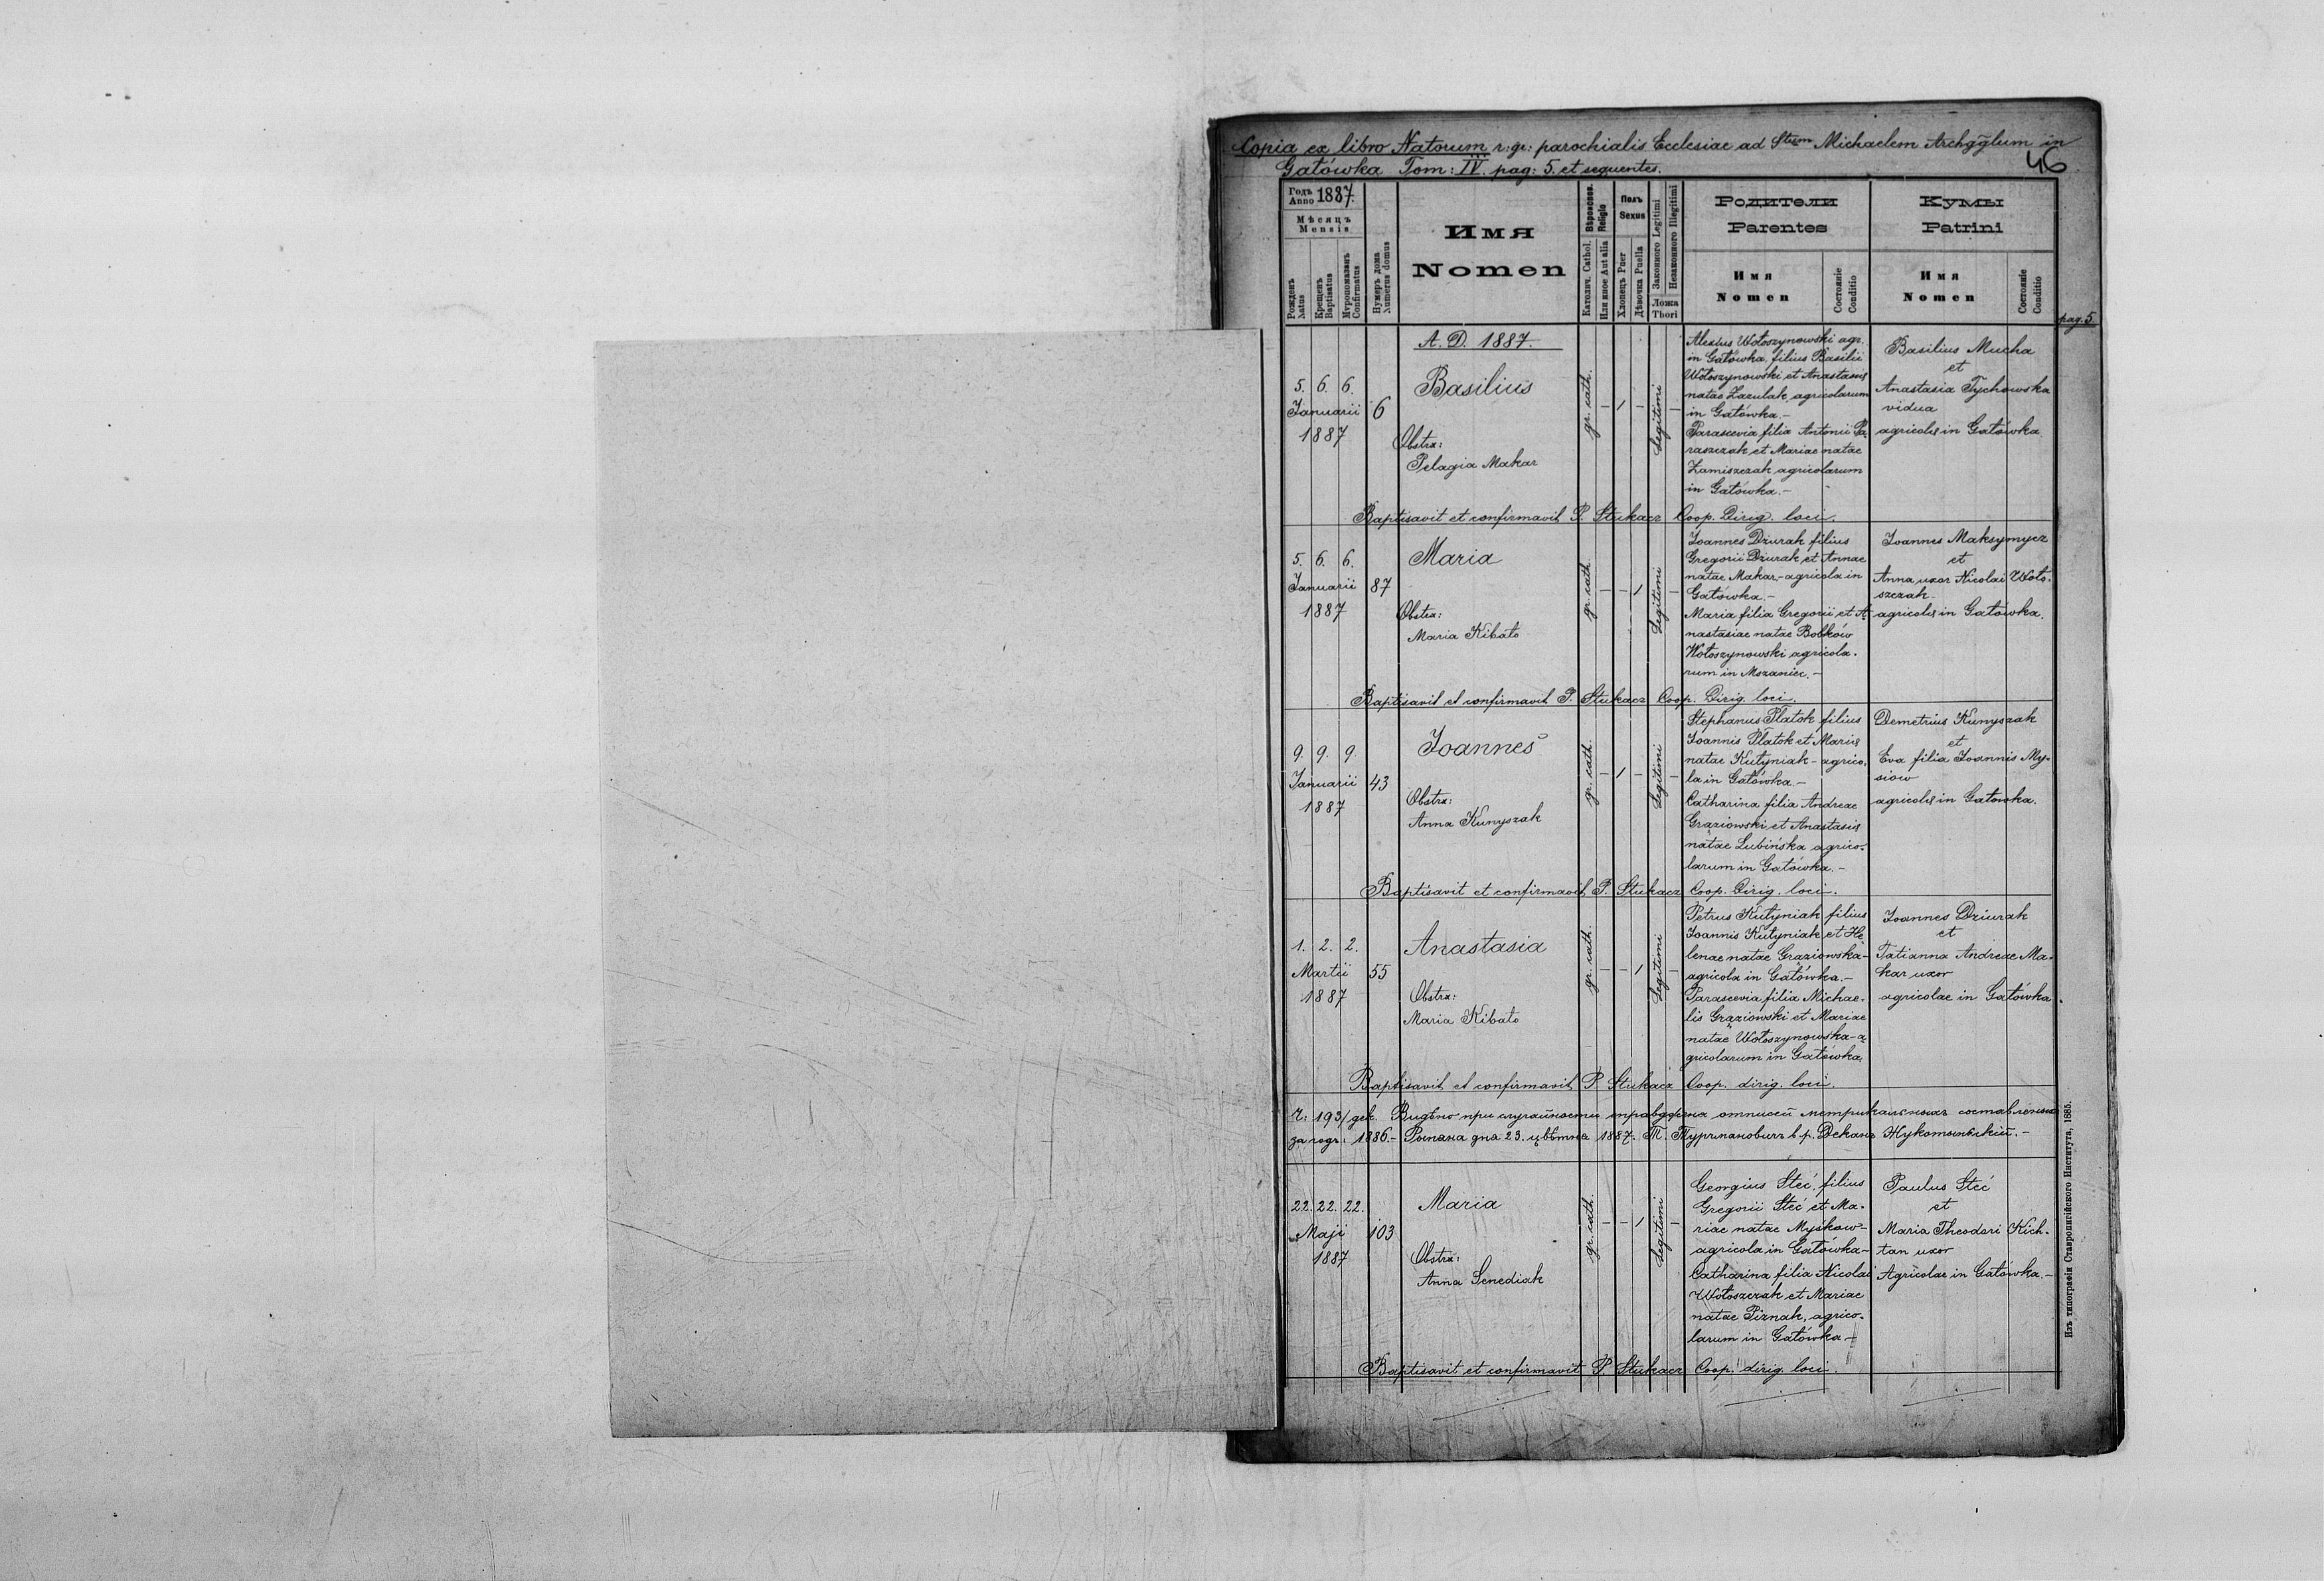 Copia ex libro Natorum r: gr: parochialis Ecclesiae ad Stum Michaelem Archglum in
Gałówka Tom: IV. pag: 5. et sequentes.
46
Годъ
Anno 1887.
Мѣсяцъ
Mensis
Рожденъ
Natus
Крещенъ
Baptisatus
Мѵропомазанъ
Confirmatus
Нумеръ дома
Numerus domus
Имя
Nomen
Вѣроисповѣд.
Religio
Католич. Cathol.
Или иное Aut alia
Полъ
Sexus
Хлопецъ Puer
Дѣвочка Puella
Законного Legitimi
Незаконного Illegitimi
Ложа
Thori
Родители
Parentes
Имя
Nomen
Состояніе
Conditio
Кумы
Patrini
Имя
Nomen
Состояніе
Conditio
pag. 5.
A. D. 1887.
5. 6. 6.
Januarii
1887
6
Basilius
Obstx:
Pelagia Makar
gr. cath.
Legitimi
Alexius Wołoszynowski agr.
in Gałówka, filius Basilii
Wołoszynowski et Anastasiae
natae Zazulak, agricolarum
in Gałówka.-
Parascevia filia Antonii Pa-
raszczak et Mariae natae
Zamiszczak agricolarum
in Gałówka.-
Basilius Mucha
et
Anastasia Tychowska
vidua
agricolae in Gałówka
Baptisavit et confirmavit P. Stukacz Coop. Dirig. loci.
5. 6. 6.
Januarii
1887
87
Maria
Obstx:
Maria Kibało
gr. cath.
Legitimi
Joannes Dziurak filius
Gregorii Dziurak et Annae
natae Makar,- agricola in
Gałówka.-
Maria filia Gregorii et A-
nastasiae natae Bobków
Wołoszynowski agricola-
rum in Mszaniec.-
Joannes Maksymycz
et
Anna uxor Nicolai Woło-
szczak
agricolae in Gałówka.
Baptisavit et confirmavit P. Stukacz Coop. Dirig. loci.
9. 9. 9.
Januarii
1887
43
Joannes
Obstx:
Anna Kunyszak
gr. cath.
Legitimi
Stephanus Płatok filius
Joannis Płatok et Mariae
natae Kutyniak - agrico-
la in Gałówka.-
Catharina filia Andreae
Grąziowski et Anastasiae
natae Lubińska agrico-
larum in Gałówka.-
Demetrius Kunyszak
et
Eva filia Joannis My-
siow
agricolae in Gałówka.
Baptisavit et confirmavit P. Stukacz Coop. Dirig. loci.
1. 2. 2.
Martii
1887
55
Anastasia
Obstx:
Maria Kibało
gr. cath.
Legitimi
Petrus Kutyniak filius
Joannis Kutyniak et He-
lenae natae Grąziowska-
agricola in Gałówka.-
Parascevia filia Michae-
lis Grąziowski et Mariae
natae Wołoszynowska - a-
gricolarum in Gałówka.
Joannes Dziurak
et
Tatianna Andreae Ma-
kar uxor
agricolae in Gałówka.
Baptisavit et confirmavit P. Stukacz Coop. dirig. loci.
Ч: 193/дек. Видѣно при случайности справдженя отписей метрикальныхъ составленыхъ
за годъ: 1886.- дна 23. цвѣтня 1887. Декана Жукотиньскій.-
22. 22. 22.
Maji
1887
103
Maria
Obstx:
Anna Senediak
gr. cath.
Legitimi
Georgius Steć, filius
Gregorii Steć et Ma-
riae natae Myśkow-
agricola in Gałówka-
Catharina filia Nicolai
Wołoszczak et Mariae
natae Piznak, agrico-
larum in Gałówka.-
Paulus Steć
et
Maria Theodori Kich-
tan uxor
Agricolae in Gałówka.-
Baptisavit et confirmavit P. Stukacz Coop. dirig. loci.
Изъ типографіи Ставропигійского Института, 1885.